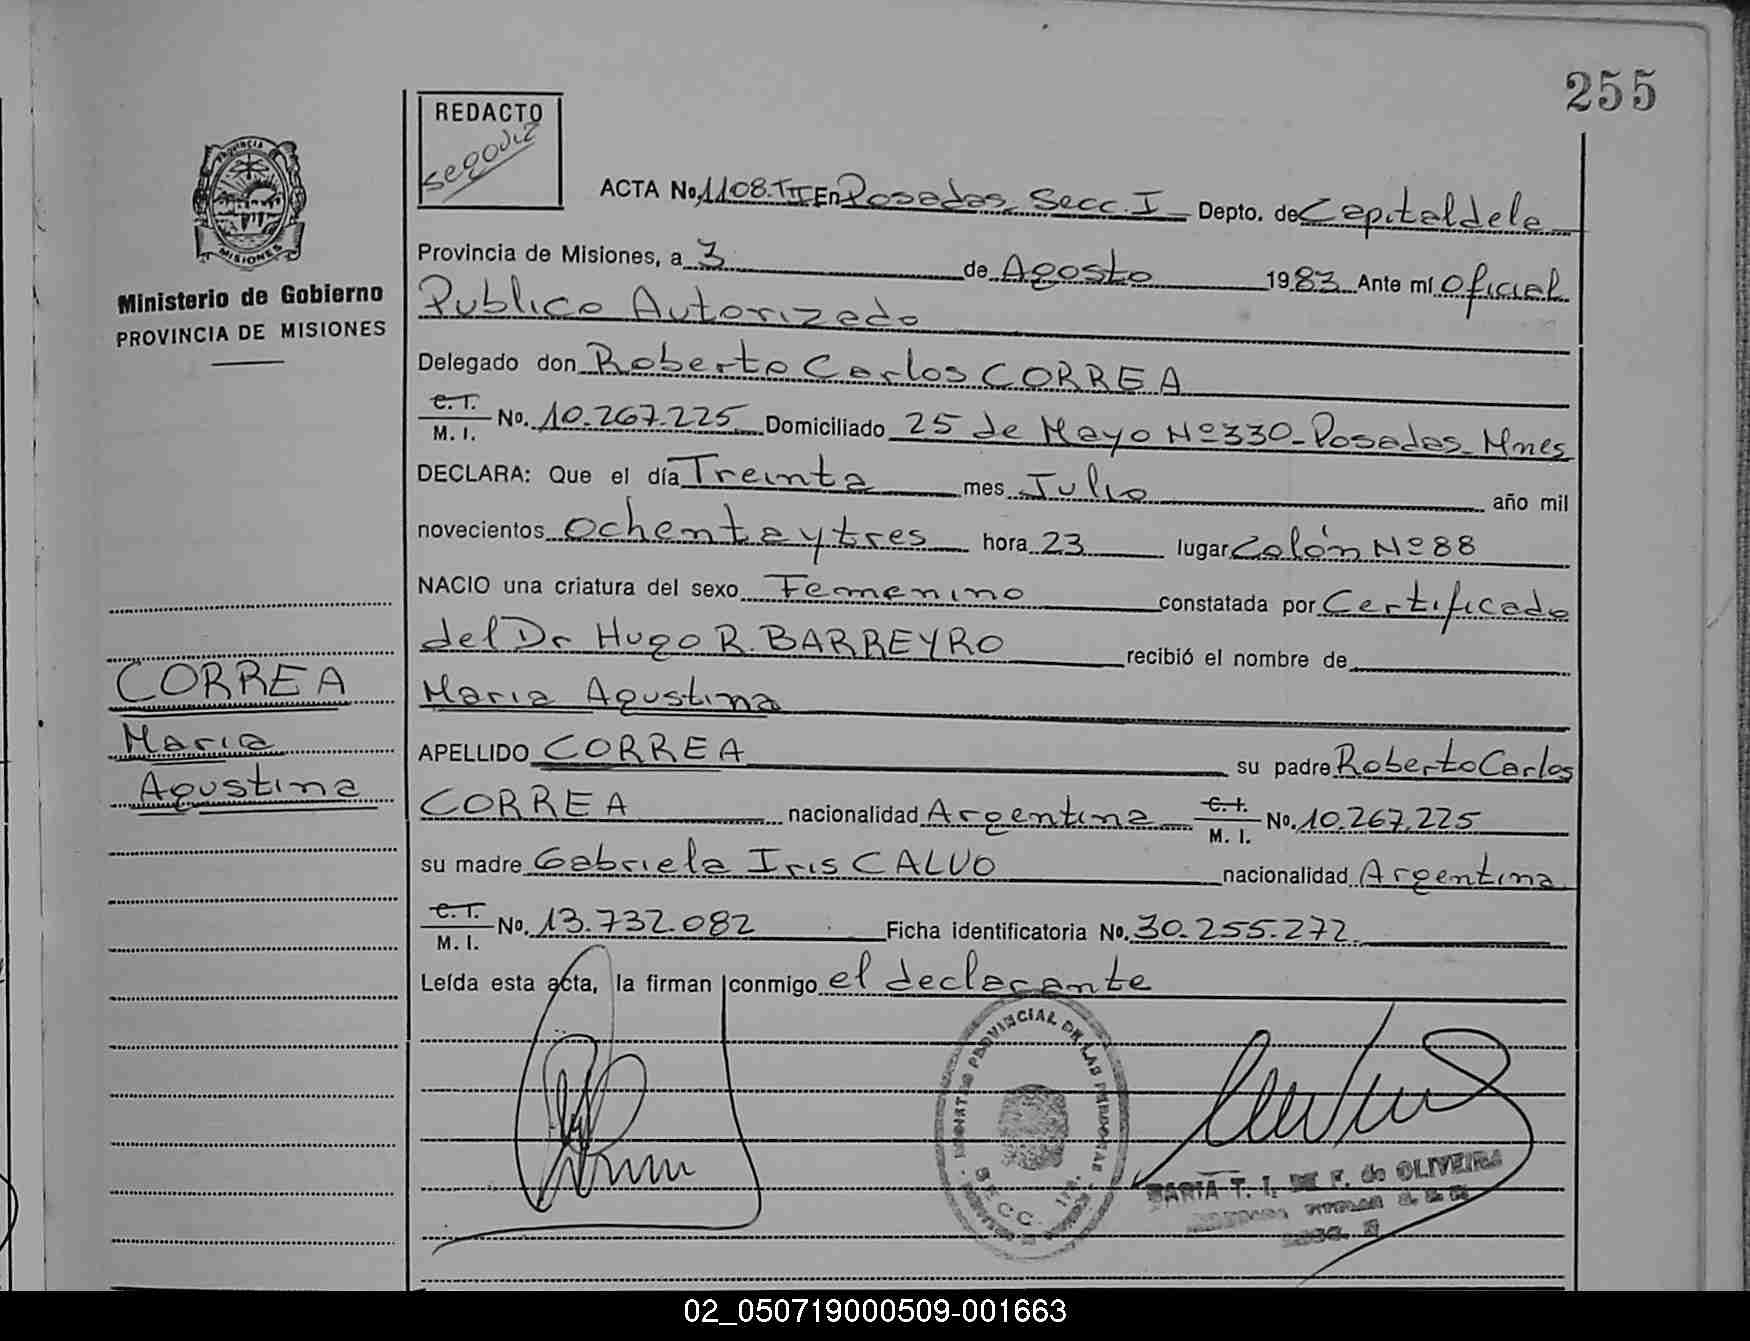 255
REDACTO
PROVINCIA
MISIONES
Ministerio de Gobierno
PROVINCIA DE MISIONES
ACTA No. 1108.TII En Posadas Secc. I Depto. de Capital de la
Provincia de Misiones, a 3 de Agosto 1983 Ante mí Oficial
Publico Autorizado
Delegado don Roberto Carlos CORREA
C.I.
M. I. No. 10.267.225 Domiciliado 25 de Mayo Nº 330 - Posadas - Mnes
DECLARA: Que el día Treinta mes Julio año mil
novecientos ochenta y tres hora 23 lugar Colón Nº 88
NACIO una criatura del sexo Femenino constatada por Certificado
del Dr Hugo R. BARREYRO recibió el nombre de
Maria Agustina
APELLIDO CORREA su padre Roberto Carlos
CORREA nacionalidad Argentina C.I.
M. I. No. 10.267.225
su madre Gabriela Iris CALVO nacionalidad Argentina
C.I.
M. I. No. 13.732.082 Ficha identificatoria No. 30.255.272
Leída esta acta, la firman conmigo el declarante
CORREA
Maria
Agustina
PROVINCIAL DE LAS PERSONAS
SECC. 1ra.
MARIA T. I. DE F. de OLIVEIRA
02_050719000509-001663